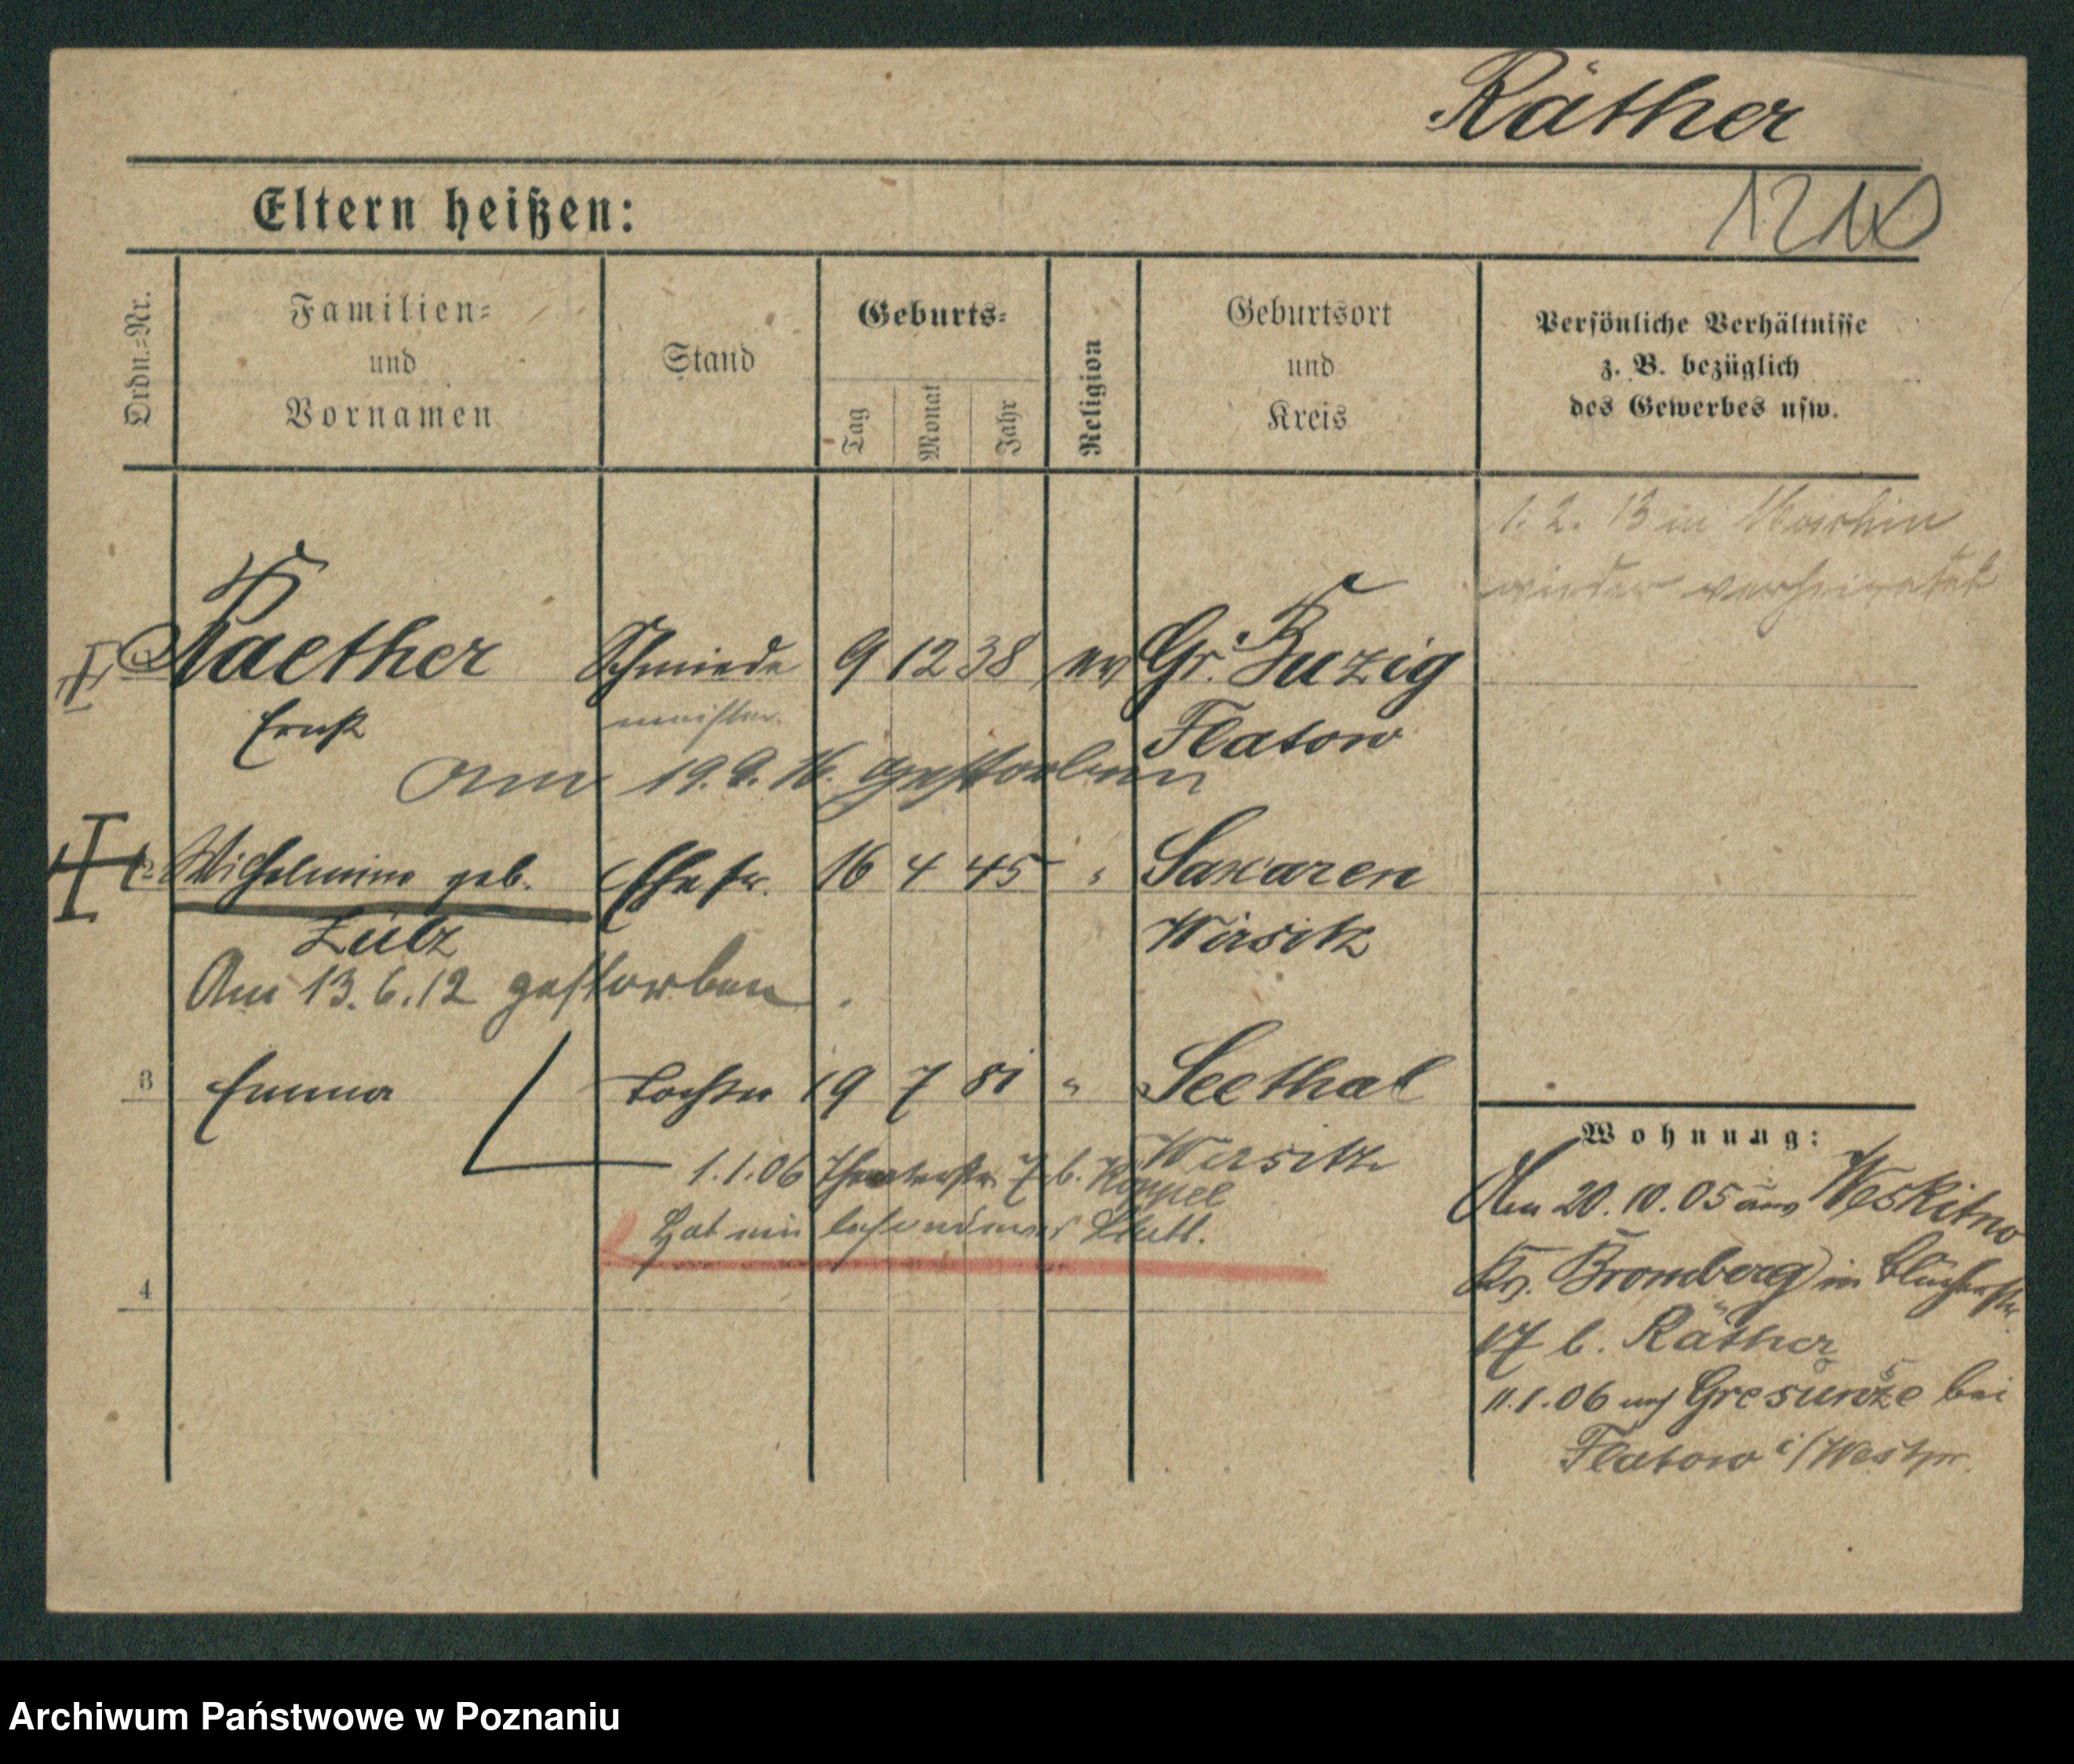 Räther
1210
Eltern heißen:
Ordn.-Nr.
Familien-
und
Vornamen
Stand
Geburts-
Tag
Monat
Jahr
Religion
Geburtsort
und
Kreis
Persönliche Verhältnisse
z. B. bezüglich
des Gewerbes usw.
1. 2. 13 in Moschin
wieder verheiratet
Raether Schmiede 9 12 38 ev Gr. Buzig
Ernst meister Flatow
am 19. 9. 16. gestorben
2 Wilhelmine geb. Ehefr. 16 4 45 " Saxaren
Lübz Wirsitz
Am 13. 6. 12 gestorben.
3 Emma Tochter 19 7 81 " Seethal
Wirsitz
1.1.06 Theaterstr. 7 b. Koppel
Hat ein besonderes Blatt.
4
Wohnung:
Am 20. 10. 05 aus Weskitno
Kr. Bromberg in Blücherstr
17 b. Räther
11.1.06 nach bei
Flatow i/Westpr.